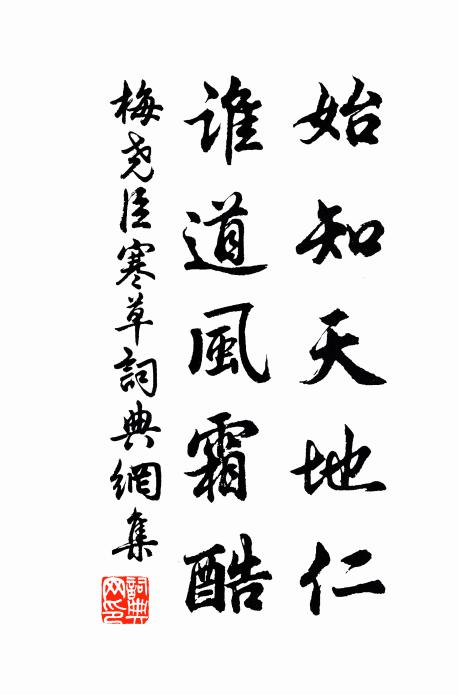 始知天地仁
誰道風霜酷
梅尧臣寒草詞典網集
詞典網印